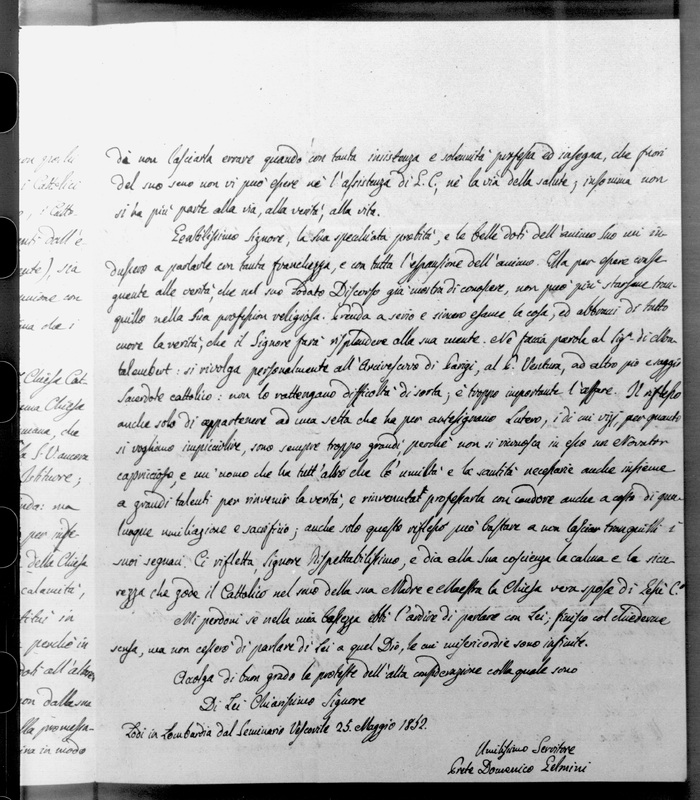 di non lasciarla errare quando con tanta insistenza e solennità professa ed insegna, che fuori
del suo seno non vi può essere nè l'assistenza di G. C., nè la via della salute; insomma non
si ha più parte alla via, alla verità, alla vita.
Gentilissimo Signore, la Sua specchiata probità, e le belle doti dell'animo Suo mi in-
dussero a parlarle con tanta franchezza, e con tutta l'espansione dell'animo. Ella per essere conse-
guente alle verità che nel suo lodato Discorso già mostra di conoscere, non può più starsene tran-
quillo nella Sua professione religiosa. Prenda a serio e sincero esame la cosa, ed abbracci di tutto
cuore la verità, che il Signore farà risplendere alla sua mente. Ne faccia parola al Sig. di Mon-
talembert: si rivolga personalmente all'Arcivescovo di Parigi, al P. Ventura, ad altro pio e saggio
Sacerdote cattolico: non lo rattengano difficoltà di sorta; è troppo importante l'affare. Il riflesso
anche solo di appartenere ad una setta che ha per antesignano Lutero, i di cui vizj per quanto
si vogliano impicciolire, sono sempre troppo grandi, perchè non si riconosca in esso un Novator
capriccioso, e un uomo che ha tutt'altro che l'umiltà e la santità necessarie anche insieme
a grandi talenti per rinvenir la verità, e rinvenuta professarla con candore anche a costo di qua-
lunque umiliazione e sacrificio; anche solo questo riflesso può bastare a non lasciar tranquilli i
suoi seguaci. Ci rifletta, Signore Rispettabilissimo, e dia alla Sua coscienza la calma e la sicu-
rezza che gode il Cattolico nel seno della sua Madre e Maestra la Chiesa vera sposa di Gesù C.º
Mi perdoni se nella mia bassezza ebbi l'ardire di parlare con Lei; finisco col chiederne
scusa, ma non cesserò di parlare di Lei a quel Dio, le cui misericordie sono infinite.
Accolga di buon grado le proteste dell'alta considerazione colla quale sono
Di Lei Chiarissimo Signore
Lodi in Lombardia dal Seminario Vescovile 25. Maggio 1852.
Umilissimo Servitore
Prete Domenico Gelmini